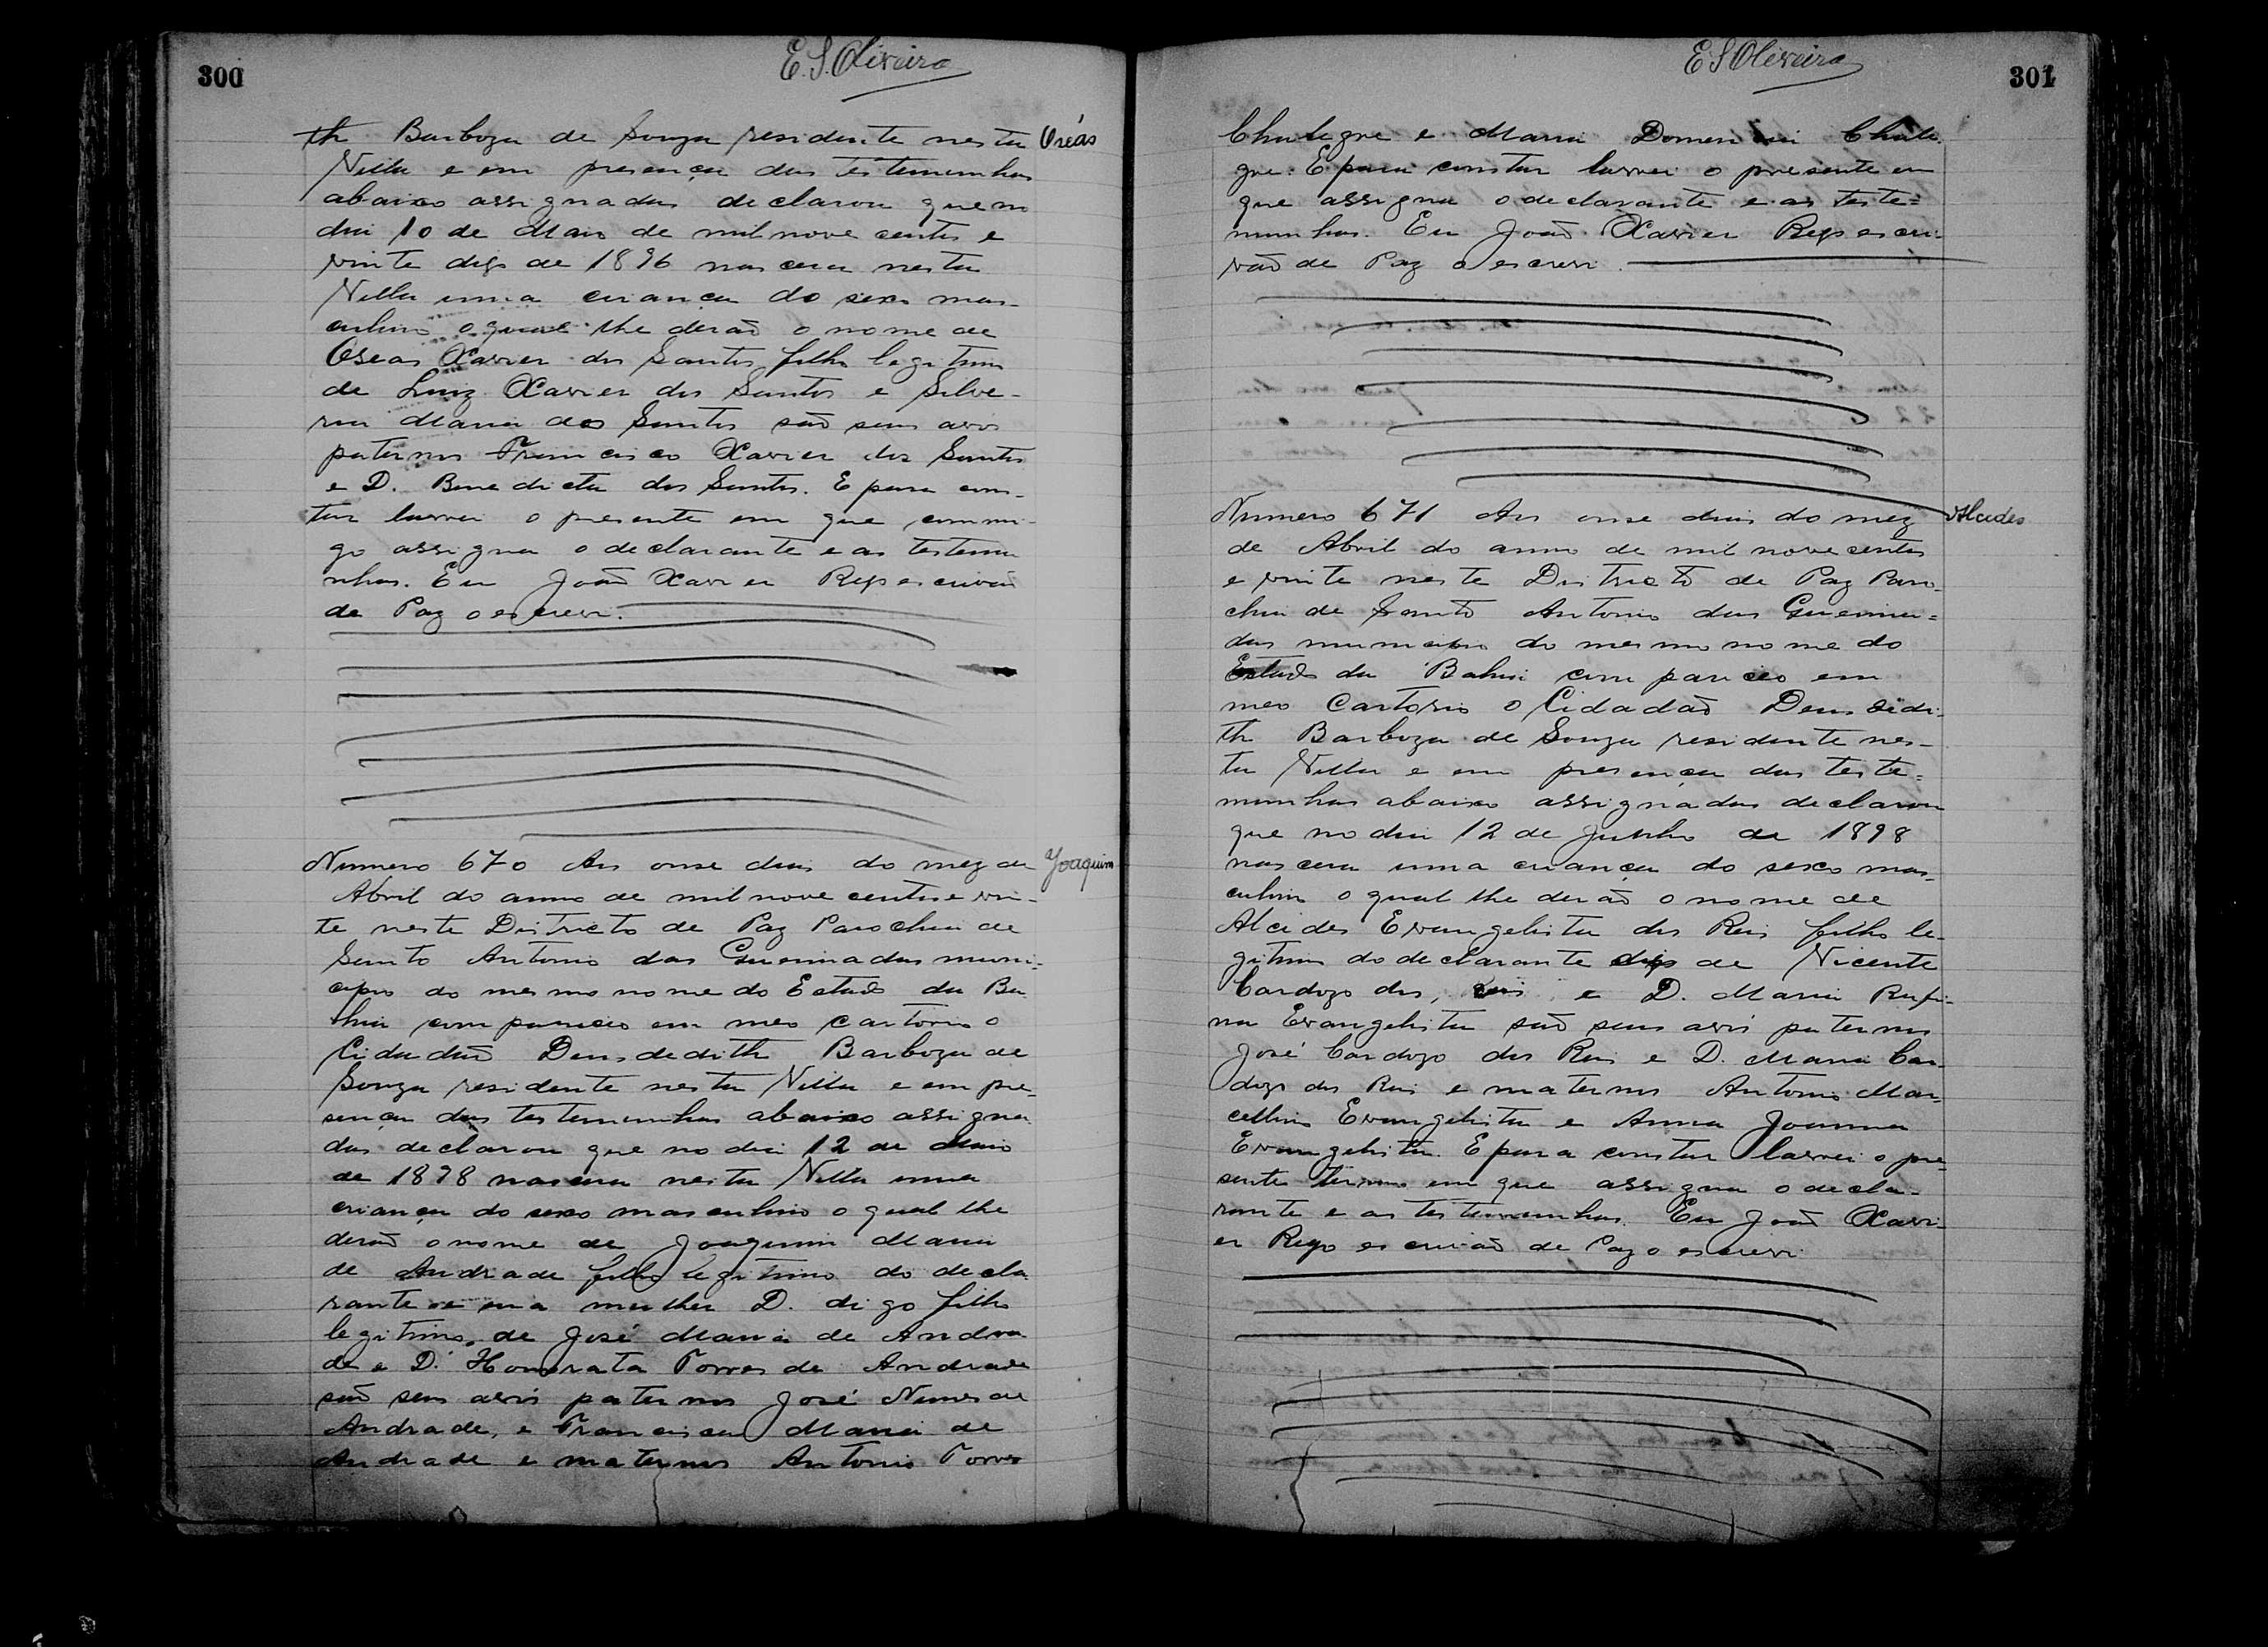 300
E. S. Oliveira
th Barboza de Souza residente nesta Oséas
Villa e em presença das testemunhas
abaixo assignadas declarou que no
dia 10 de Maio de mil nove centos e
vinte digo de 1896 nascera nesta
Villa uma criança do sexo mas-
culino o qual lhe derão o nome de
Oseas Xavier dos Santos filho legitimo
de Luiz Xavier dos Santos e Silve-
ria Maria dos Santos são seus avos
paternos Francisco Xavier dos Santos
e D. Benedicta dos Santos. E para cons-
tar lavrei o presente em que commi-
go assigna o declarante e as testemu
nhas. Eu João Xavier Rego escrivão
de Paz o escrevi.
Numero 670 Aos onse dias do mez de Joaquim
Abril do anno de mil nove centos e vin-
te neste Districto de Paz Parochia de
Santo Antonio das Queimadas muni-
cipio do mesmo nome do Estado da Ba
hia compareceo em meo cartorio o
Cidadão Deusdedith Barboza de
Souza residente nesta Villa e em pre-
sença das testemunhas abaixo assigna
das declarou que no dia 12 de Maio
de 1898 nascera nesta Villa uma
criança do sexo masculino o qual lhe
derão o nome de Joaquim Maria
de Andrade filho legitimo do decla
rante e sua mulher D. digo filho
legitimo de José Maria de Andra
de e D. Honorata Torres de Andrade
são seus avós paternos José Nunes de
Andrade, e Francisca Maria de
Andrade e maternos Antonio Torres
E S Oliveira
301
Chalegre e Maria Chale
gre. E para constar lavrei o presente em
que assigna o declarante e as teste=
munhas. Eu João Xavier Rego escri-
vão de Paz o escrevi.
Numero 671 Aos onse dias do mez Alcides
de Abril do anno de mil nove centos
e vinte neste Districto de Paz Paro-
chia de Santo Antonio das Queima=
das municipio do mesmo nome do
Estado da Bahia compareceo em
meo Cartorio o Cidadão Deusdedi-
th Barboza de Souza residente nes-
ta Villa e em presença das teste=
munhas abaixo assignadas declarou
que no dia 12 de Junho de 1898
nascera uma criança do sexo mas-
culino o qual lhe derão o nome de
Alcides Evangelista dos Reis filho le-
gitimo do declarante digo de Vicente
Cardozo dos Reis e D. Maria Rufi-
na Evangelista são seus avós paternos
José Cardozo dos Reis e D. Maria Car-
dozo dos Reis e maternos Antonio Mar-
cellino Evangelista e Anna Joanna
Evangelista. E para constar lavrei o pre-
sente termo em que assigna o decla-
rante e as testemunhas. Eu João Xavi-
er Rego escrivão de Paz o escrevi